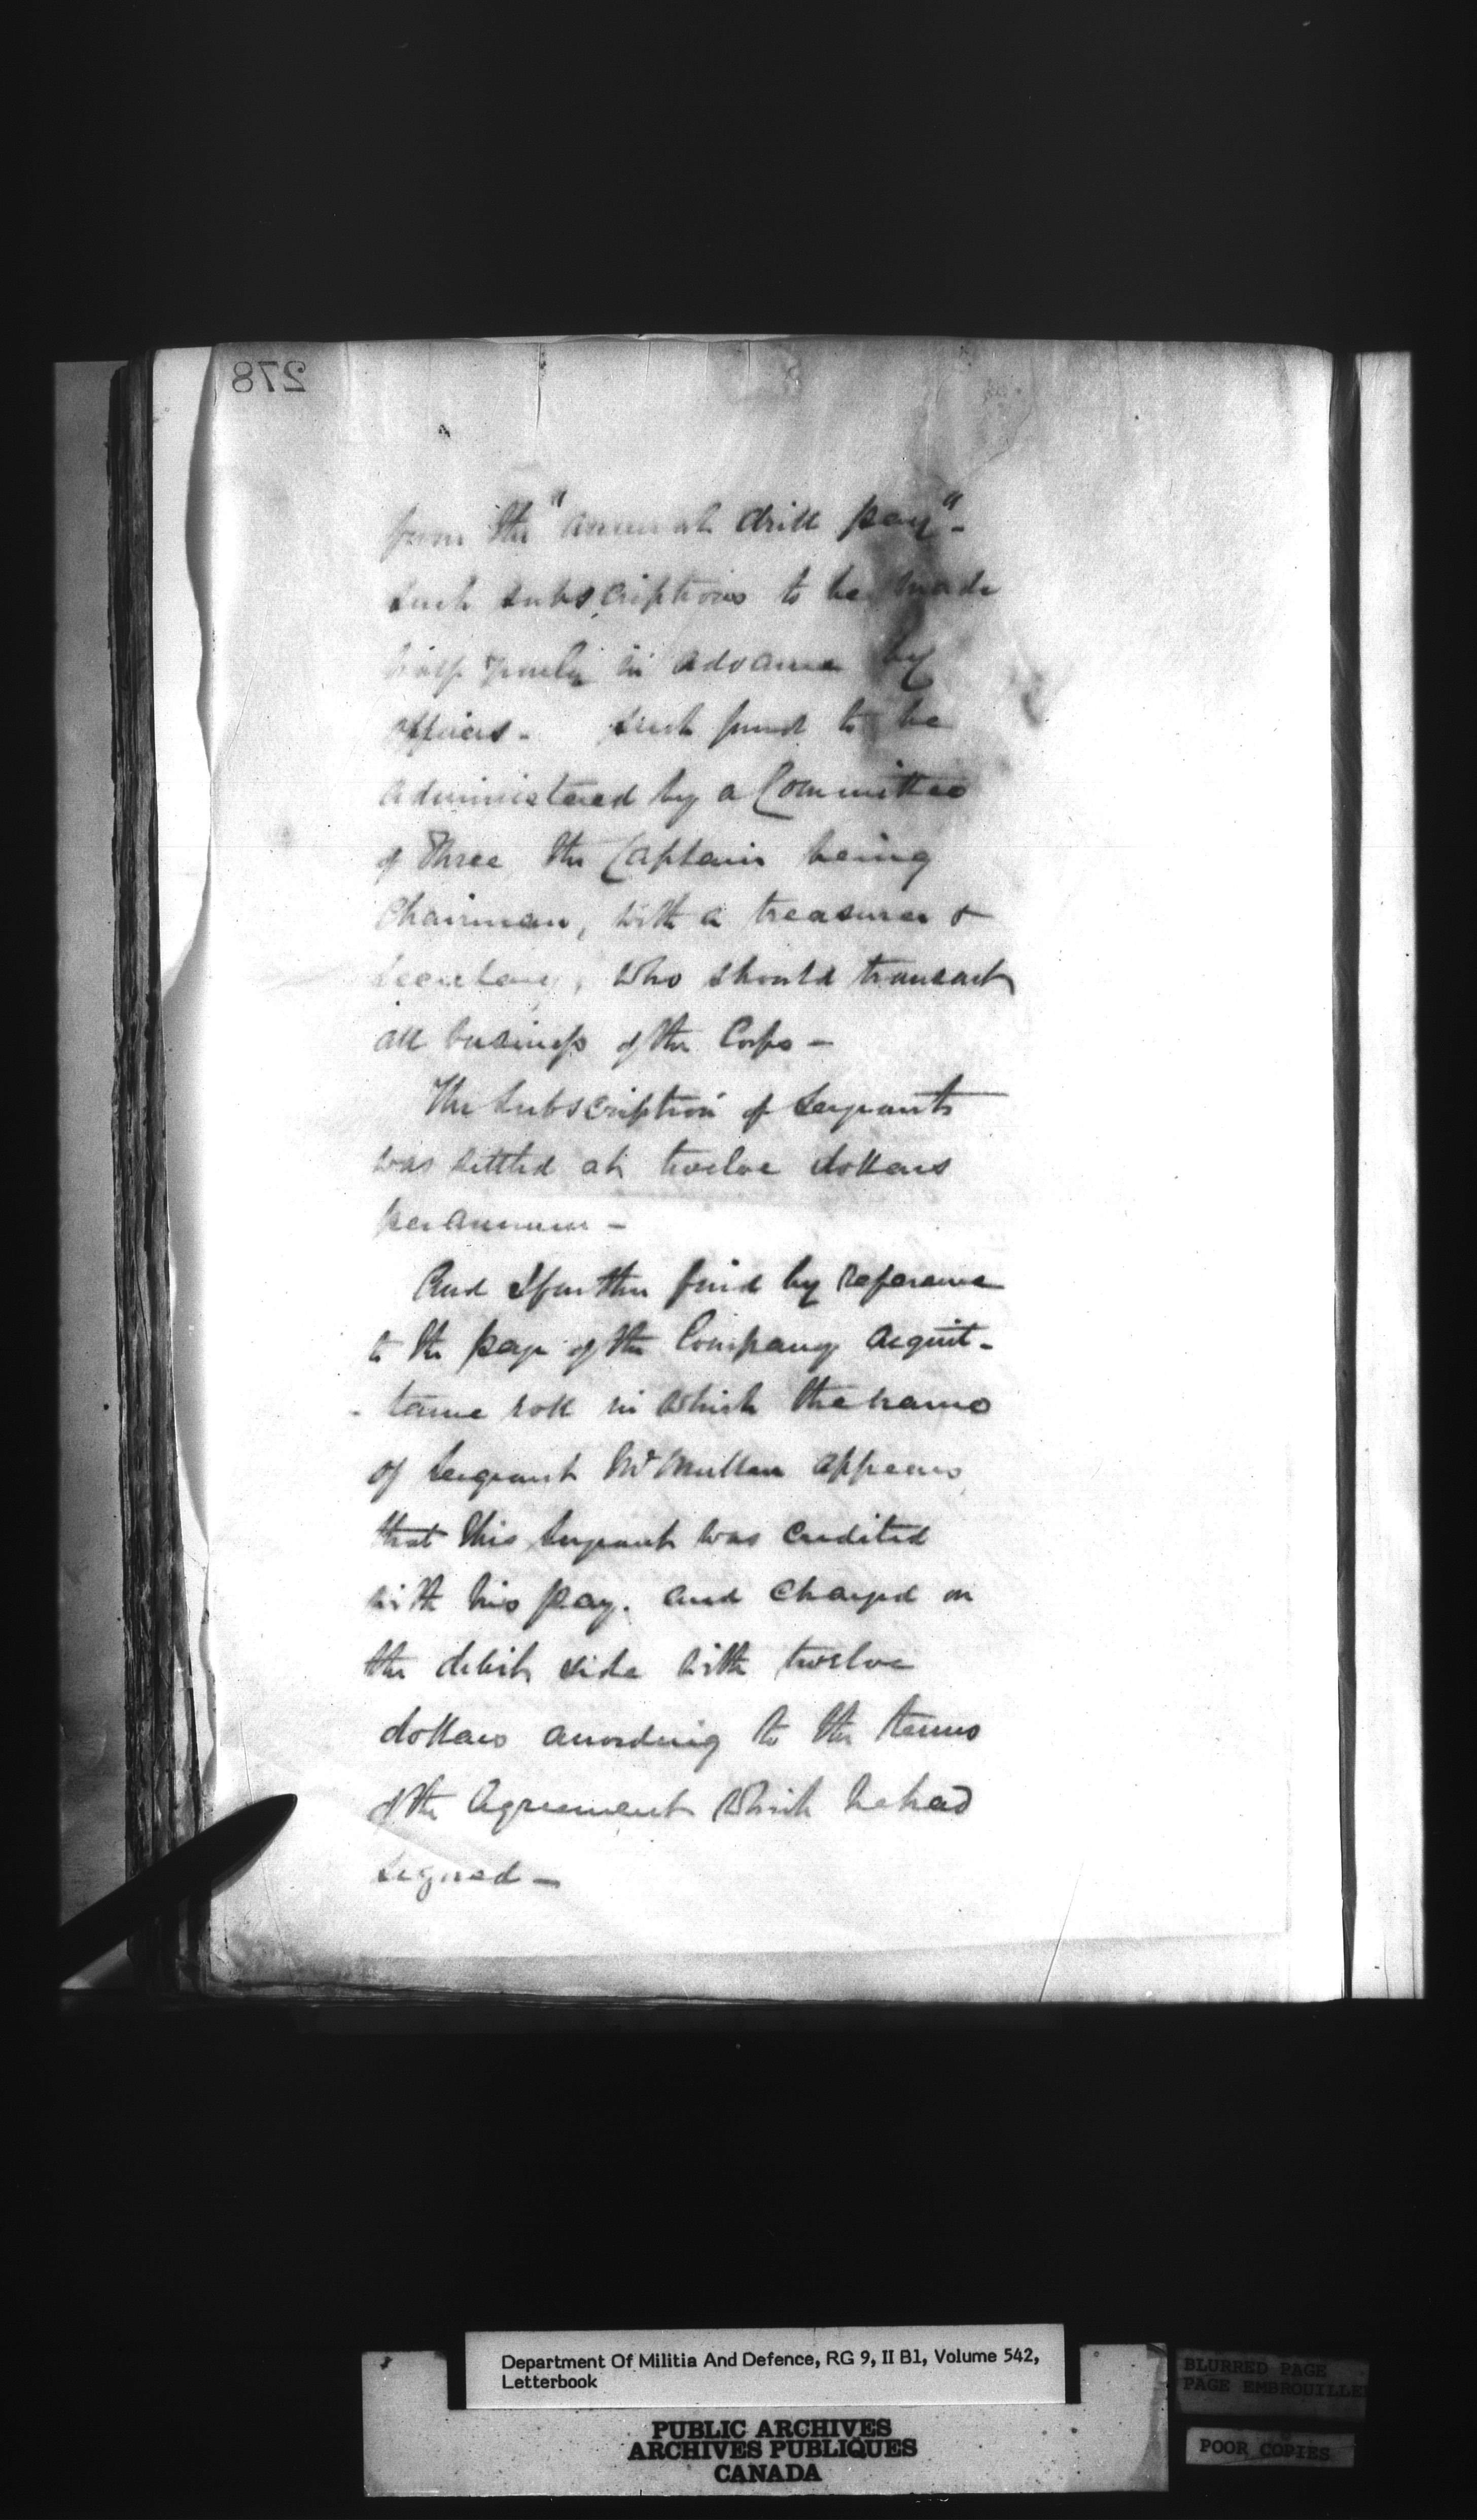 278
from the "annual drill pay"-
such subscriptions to be made
half yearly in advance by
officers - such fund to be
administered by a Committee
of three the Captain being
Chairman, with a treasurer &
Secretary, who should transact
all business of the Corps -
The subscription of Sergeants
was settled at twelve dollars
per annum -
And I further find by reference
to the page of the Company acquit-
- tance roll in which the name
of Sergeant McMullen appears
that this Sergeant was credited
with his pay. and charged on
the debit side with twelve
dollars according to the terms
of the Agreement which he had
signed -
Department Of Militia And Defence, RG 9, II B1, Volume 542,
Letterbook
PUBLIC ARCHIVES
ARCHIVES PUBLIQUES
CANADA
BLURRED PAGE
PAGE EMBROUILLE
POOR COPIES